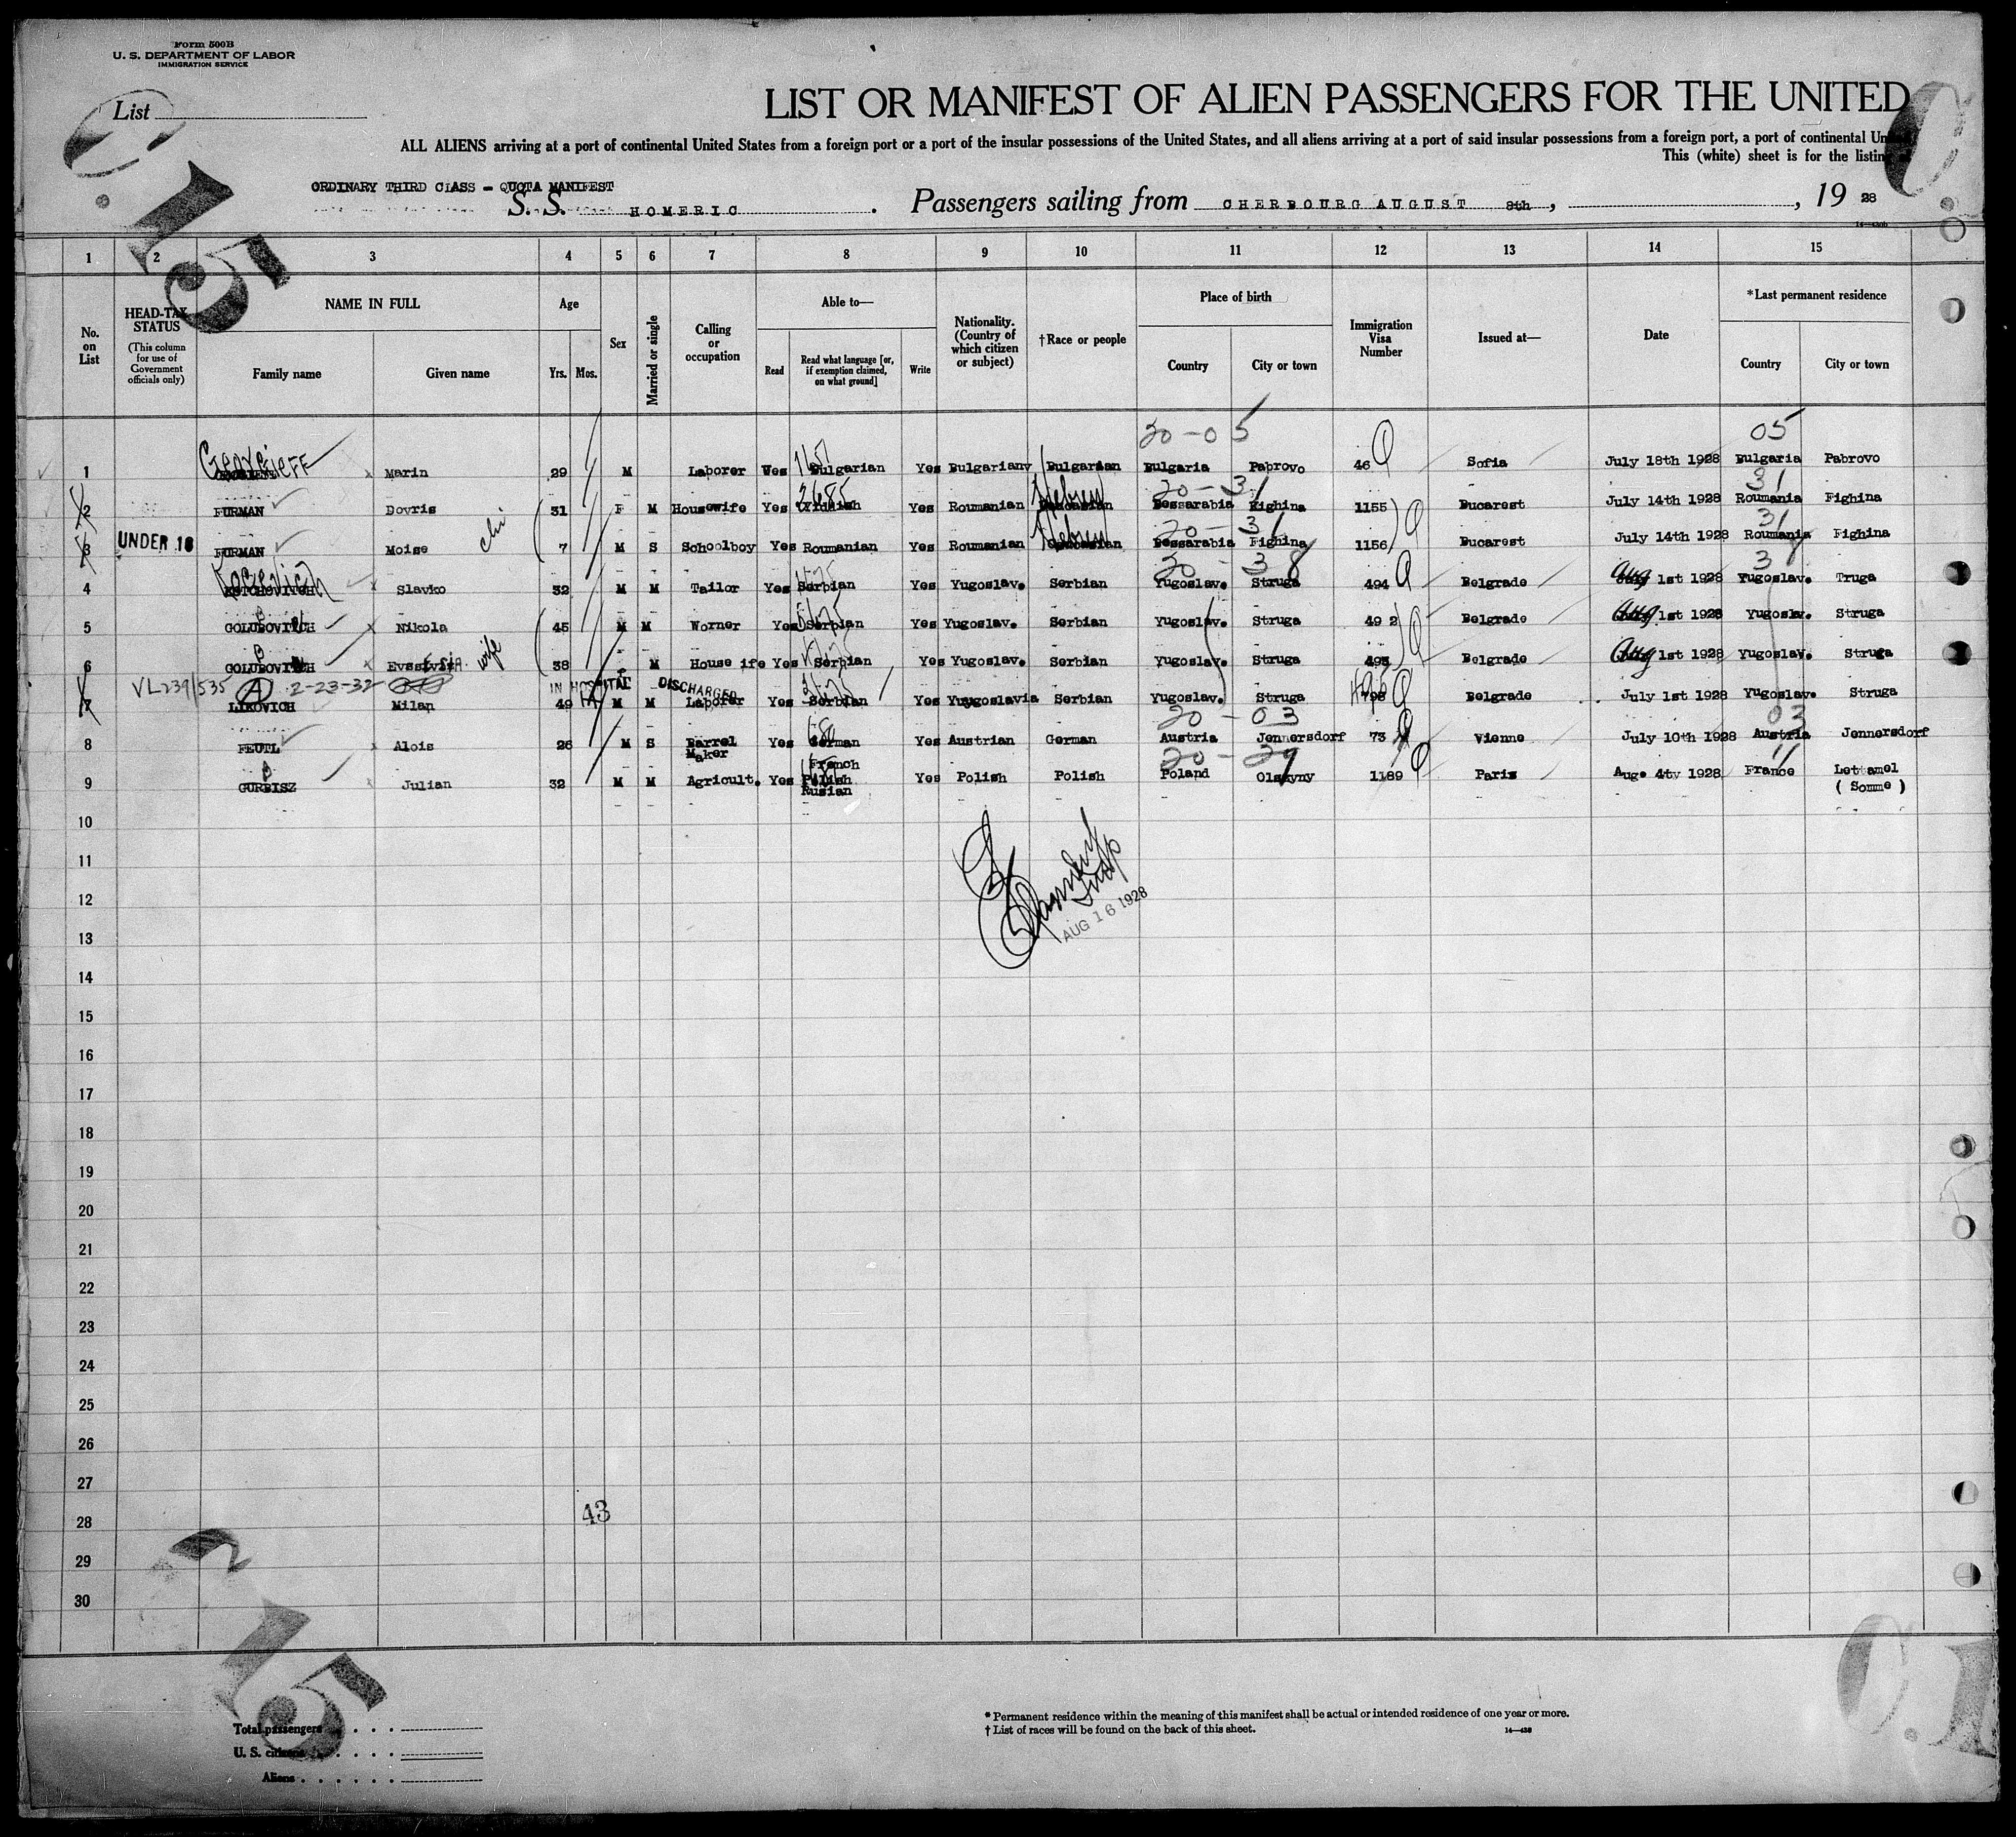 Form 500B
U. S. DEPARTMENT OF LABOR
IMMIGRATION SERVICE
List
LIST OR MANIFEST OF ALIEN PASSENGERS FOR THE UNITED
ALL ALIENS arriving at a port of continental United States from a foreign port or a port of the insular possessions of the United States, and all aliens arriving at a port of said insular possessions from a foreign port, a port of continental
This (white) sheet is for the listing
ORDINARY THIRD CLASS - QUOTA MANIFEST
S. S. HOMERIC. Passengers sailing from CHERBOURG AUGUST 8th, , 19 28
1 2 3 4 5 6 7 8 9 10 11 12 13 14 15
No. on List
HEAD-TAX STATUS
(This column for use of Government officials only)
NAME IN FULL
Family name Given name
Age
Yrs. Mos.
Sex
Married or single
Calling or occupation
Able to—
Read
Read what language [or, if exemption claimed, on what ground]
Write
Nationality. (Country of which citizen or subject)
†Race or people
Place of birth
Country City or town
Immigration Visa Number
Issued at—
Date
*Last permanent residence
Country City or town
20-05 05
1 Georgieff Marin 29 M Laborer Yes Bulgarian Yes Bulgarian Bulgarian Bulgaria Pabrovo 46 Sofia July 18th 1928 Bulgaria Pabrovo
20-31 31
2 FURMAN Dovris 31 F M Housewife Yes Yiddish Yes Roumanian Hebrew Bessarabia Kighina 1155 Bucarest July 14th 1928 Roumania Fighina
20-31 31
3 UNDER 16 FURMAN Moise chi 7 M S Schoolboy Yes Roumanian Yes Roumanian Hebrew Bessarabia Fighina 1156 Bucarest July 14th 1928 Roumania Fighina
20-38 38
4 KOTCHOVITCH Slavko 32 M M Tailor Yes Serbian Yes Yugoslav. Serbian Yugoslav. Struga 494 Belgrade Aug 1st 1928 Yugoslav. Truga
5 GOLUBOVITCH Nikola 45 M M Worner Yes Serbian Yes Yugoslav. Serbian Yugoslav. Struga 49 2 Belgrade Aug 1st 1928 Yugoslv. Struga
6 GOLUBOVITCH wife 38 M House ife Yes Serbian Yes Yugoslav. Serbian Yugoslav. Struga 493 Belgrade Aug 1st 1928 Yugoslav. Struga
VL239/535 A 2-23-32 IN HOSPITAL DISCHARGED
7 LIKOVICH Milan 49 M M Laborer Yes Serbian Yes Yuygoslavia Serbian Yugoslav. Struga 495 Belgrade July 1st 1928 Yugoslav. Struga
20-03 03
8 FEUTL Alois 26 M S Barrel Maker Yes German Yes Austrian German Austria Jennersdorf 73 Vienne July 10th 1928 Austria Jennersdorf
20-29 11
9 GURBISZ Julian 32 M M Agricult. Yes French Polish Rusian Yes Polish Polish Poland Olszyny 1189 Paris Aug. 4tv 1928 France Lettamel
( Somme )
10
11
12
13
AUG 16 1928
14
15
16
17
18
19
20
21
22
23
24
25
26
27
28
43
29
30
Total passengers
U. S. citizens
Aliens
* Permanent residence within the meaning of this manifest shall be actual or intended residence of one year or more.
† List of races will be found on the back of this sheet.
14—430